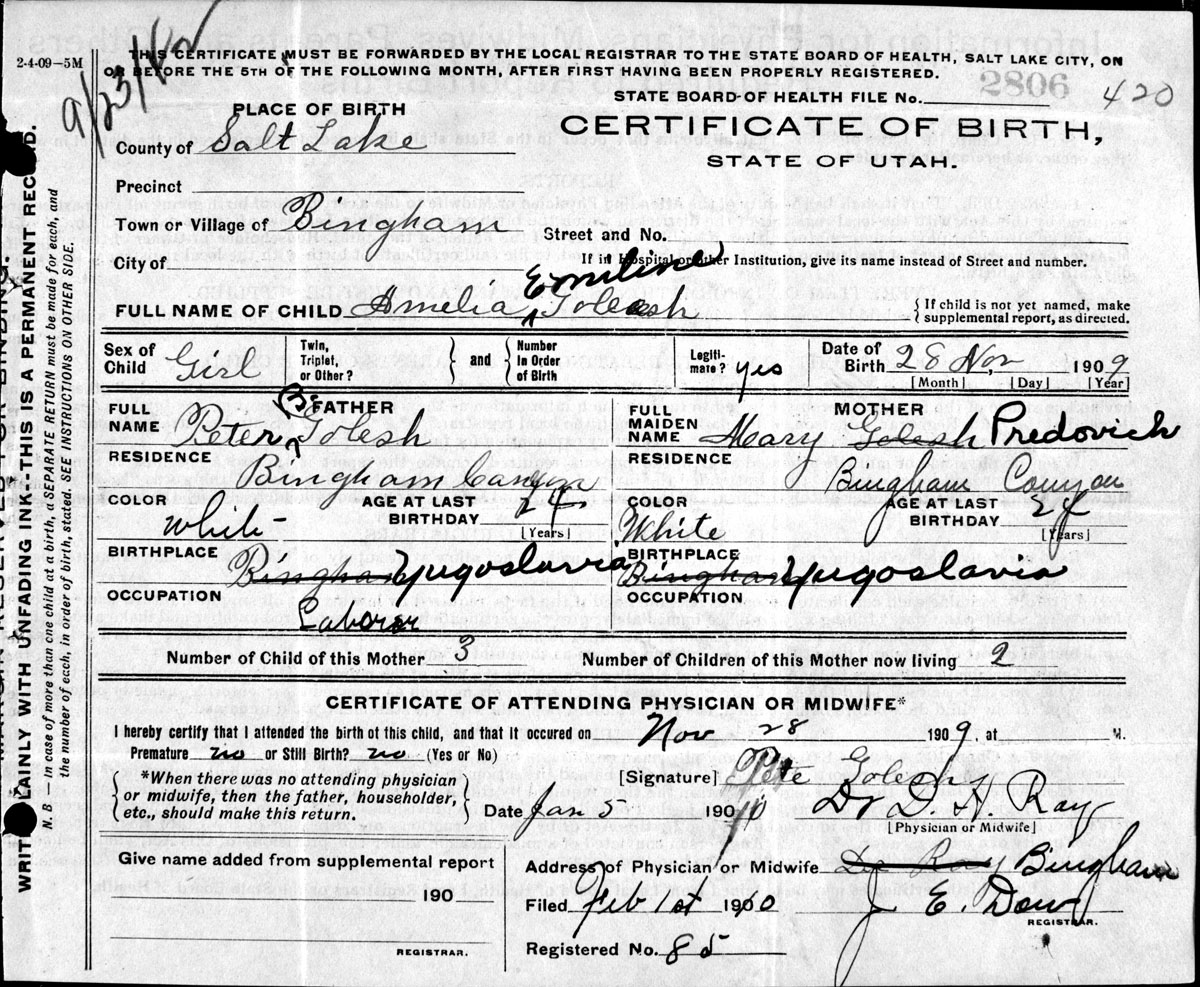 2-4-09—5M
9/23/42
THIS CERTIFICATE MUST BE FORWARDED BY THE LOCAL REGISTRAR TO THE STATE BOARD OF HEALTH, SALT LAKE CITY, ON
OR BEFORE THE 5TH OF THE FOLLOWING MONTH, AFTER FIRST HAVING BEEN PROPERLY REGISTERED.
2806
STATE BOARD OF HEALTH FILE No. 420
PLACE OF BIRTH
CERTIFICATE OF BIRTH,
STATE OF UTAH.
County of Salt Lake
Precinct
Town or Village of Bingham
Street and No.
City of
If in Hospital or other Institution, give its name instead of Street and number.
Emiline
FULL NAME OF CHILD Amelia ^ Golesh
{ If child is not yet named, make supplemental report, as directed.
Sex of Child Girl
Twin, Triplet, or Other? } and { Number in Order of Birth
Legiti-mate? yes
Date of Birth 28 Nov 1909
[Month] [Day] [Year]
FATHER
FULL NAME Peter B. Golesh
MOTHER
FULL MAIDEN NAME Mary Golesh Predovich
RESIDENCE Bingham Canyon
RESIDENCE Bingham Canyon
COLOR White AGE AT LAST BIRTHDAY 24 [Years]
COLOR White AGE AT LAST BIRTHDAY 24 [Years]
BIRTHPLACE Bingham Yugoslavia
BIRTHPLACE Bingham Yugoslavia
OCCUPATION Laborer
OCCUPATION
Number of Child of this Mother 3
Number of Children of this Mother now living 2
CERTIFICATE OF ATTENDING PHYSICIAN OR MIDWIFE*
I hereby certify that I attended the birth of this child, and that it occured on Nov 28 1909, at M.
Premature no or Still Birth? no (Yes or No)
*When there was no attending physician
or midwife, then the father, householder,
etc., should make this return.
[Signature] Pete Golesh
Date Jan 5 1910 Dr D. H. Ray
[Physician or Midwife]
Give name added from supplemental report
190
REGISTRAR.
Address of Physician or Midwife Dr Ray Bingham
Filed Feb 1st 1910 J E. Dow
REGISTRAR.
Registered No. 85
WRITE PLAINLY WITH UNFADING INK—THIS IS A PERMANENT RECORD.
N. B. — In case of more than one child at a birth, a SEPARATE RETURN must be made for each, and
the number of each, in order of birth, stated. SEE INSTRUCTIONS ON OTHER SIDE.